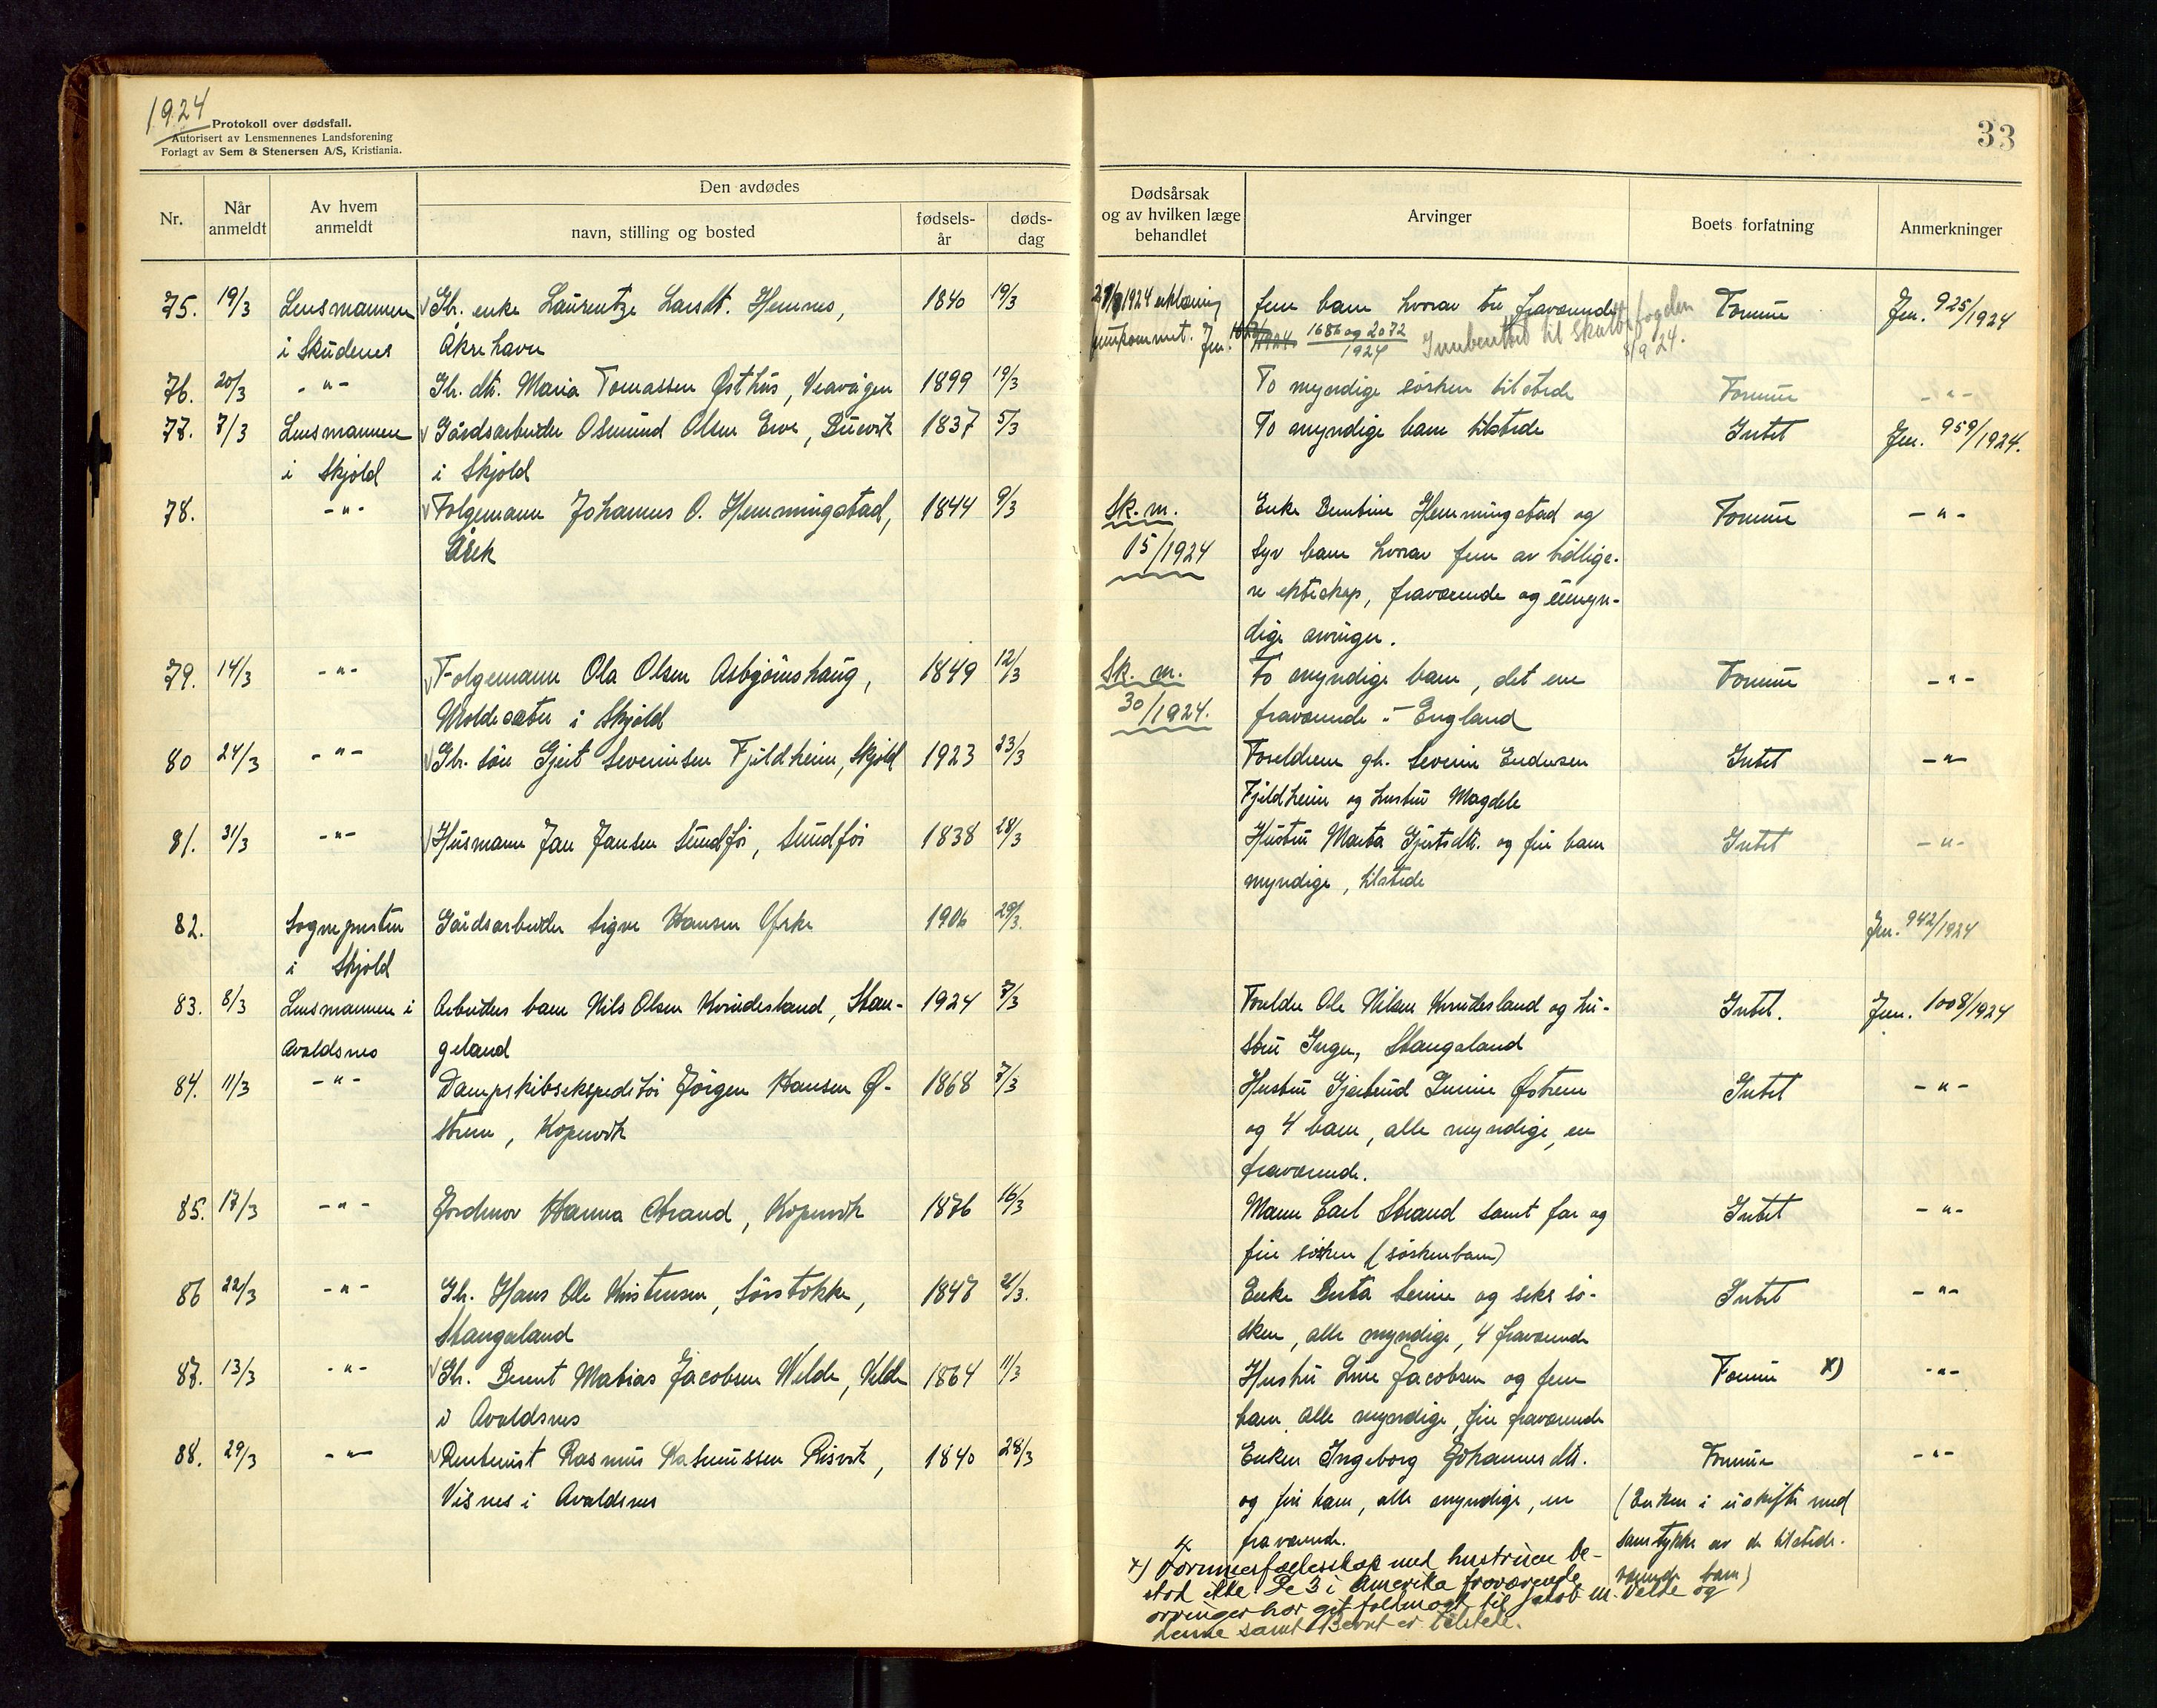 1924
Protokoll over dødsfall.
Autorisert av Lensmennenes Landsforening
Forlagt av Sem & Stenersen A/S, Kristiania.
33
Nr.
Når anmeldt
Av hvem anmeldt
Den avdødes
navn, stilling og bosted
fødsels-år
døds-dag
Dødsårsak og av hvilken læge behandlet
Arvinger
Boets forfatning
Anmerkninger
75. 19/3 Lensmannen √ Gh. enke Laurentze Larsdt. Hemnes, 1840 19/3 1924 erklæring fem barn hvorav tre fraværende Formue Jnr. 925/1924
i Skudenes Åkrehavn fremkommet. Jnr. 1686 og 2072/1924 Innberettet til Skattefogden 8/9 24.
76. 20/3 -"- Gh. dtr. Maria Tomassen Østhus, Veavågen 1899 19/3 To myndige søsken tilstede Formue -"-
77. 7/3 Lensmannen √ Gårdsarbeider Osmund Olsen Erve, Buevik 1837 5/3 To myndige barn tilstede Intet Jnr. 959/1924.
i Skjold i Skjold
78. -"- √ Følgemann Johannes O. Hemmingstad, 1844 9/3 Sk. m. Enke Bentine Hemmingstad og Formue -"-
15/1924 syv barn hvorav fem av tidlige-
re ekteskap, fraværende og umyn-
dige arvinger.
79. 14/3 -"- √ Følgemann Ola Olsen Asbjørnshaug, 1849 12/3 Sk. m. To myndige barn, det ene Formue -"-
Moldesæter i Skjold 30/1924. fraværende i England
80 24/3 -"- √ Gh. søn Gjert Severinsen Fjeldheim, Skjold 1923 23/3 Foreldrene gh. Severin Endresen Intet -"-
Fjeldheim og hustru Magdele
81. 31/3 -"- √ Husmann Jan Jansen Sundfør, Sundfør 1838 28/3 Hustru Marta Gjertsdtr. og fire barn Intet -"-
myndige, tilstede
82. Sognepresten Gårdsarbeider Sigve Hansen Ørke 1906 29/3. Jnr. 942/1924
i Skjold
83. 8/3 Lensmannen i Arbeiders barn Nils Olsen Kvindesland, Stan- 1924 7/3 Foreldre Ole Nilsen Kvindesland og hu- Intet. Jnr. 1008/1924
Avaldsnes geland stru Inger, Stangeland
84. 11/3 -"- Dampskibsekspeditør Jørgen Hansen Ø- 1868 7/3 Hustru Gjertrud Gurine Østrem Intet -"-
strem, Kopervik og 4 barn, alle myndige, en
fraværende.
85. 17/3 -"- Jordmor Hanna Strand, Kopervik 1876 16/3 Mann Carl Strand samt far og Intet -"-
fire søsken (søskenbarn)
86 22/3 -"- Gh. Hans Ole Kristensen, Sørstokke, 1847 21/3. Enke Berta Serine og seks sø- Intet -"-
Stangaland sken, alle myndige, 4 fraværende
87. 13/3 -"- √ Gh. Bernt Matias Jacobsen Velde, Velde 1864 11/3 Hustru Line Jacobsen og fem Formue x) -"-
i Avaldsnes barn alle myndige, fire fraværende
88. 29/3 -"- √ Rentenist Rasmus Rasmussen Risvik, 1840 28/3 Enken Ingeborg Johannesdtr. Formue -"-
Visnes i Avaldsnes og fire barn, alle myndige, en (Enken i uskifte med
fraværende. samtykke av de tilstede-
værende barn)
x) Formuesfællesskap med hustruen be-
stod ikke. De 3 i Amerika fraværende
arvinger har git fuldmagt til Jakob M. Velde og
denne samt Bernt er tilstede.